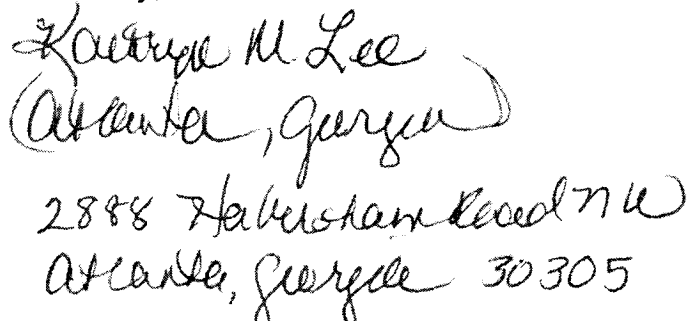 Kathryn M Lee
(Atlanta, Georgia)
2888 Habersham Road NW
Atlanta, Georgia 30305